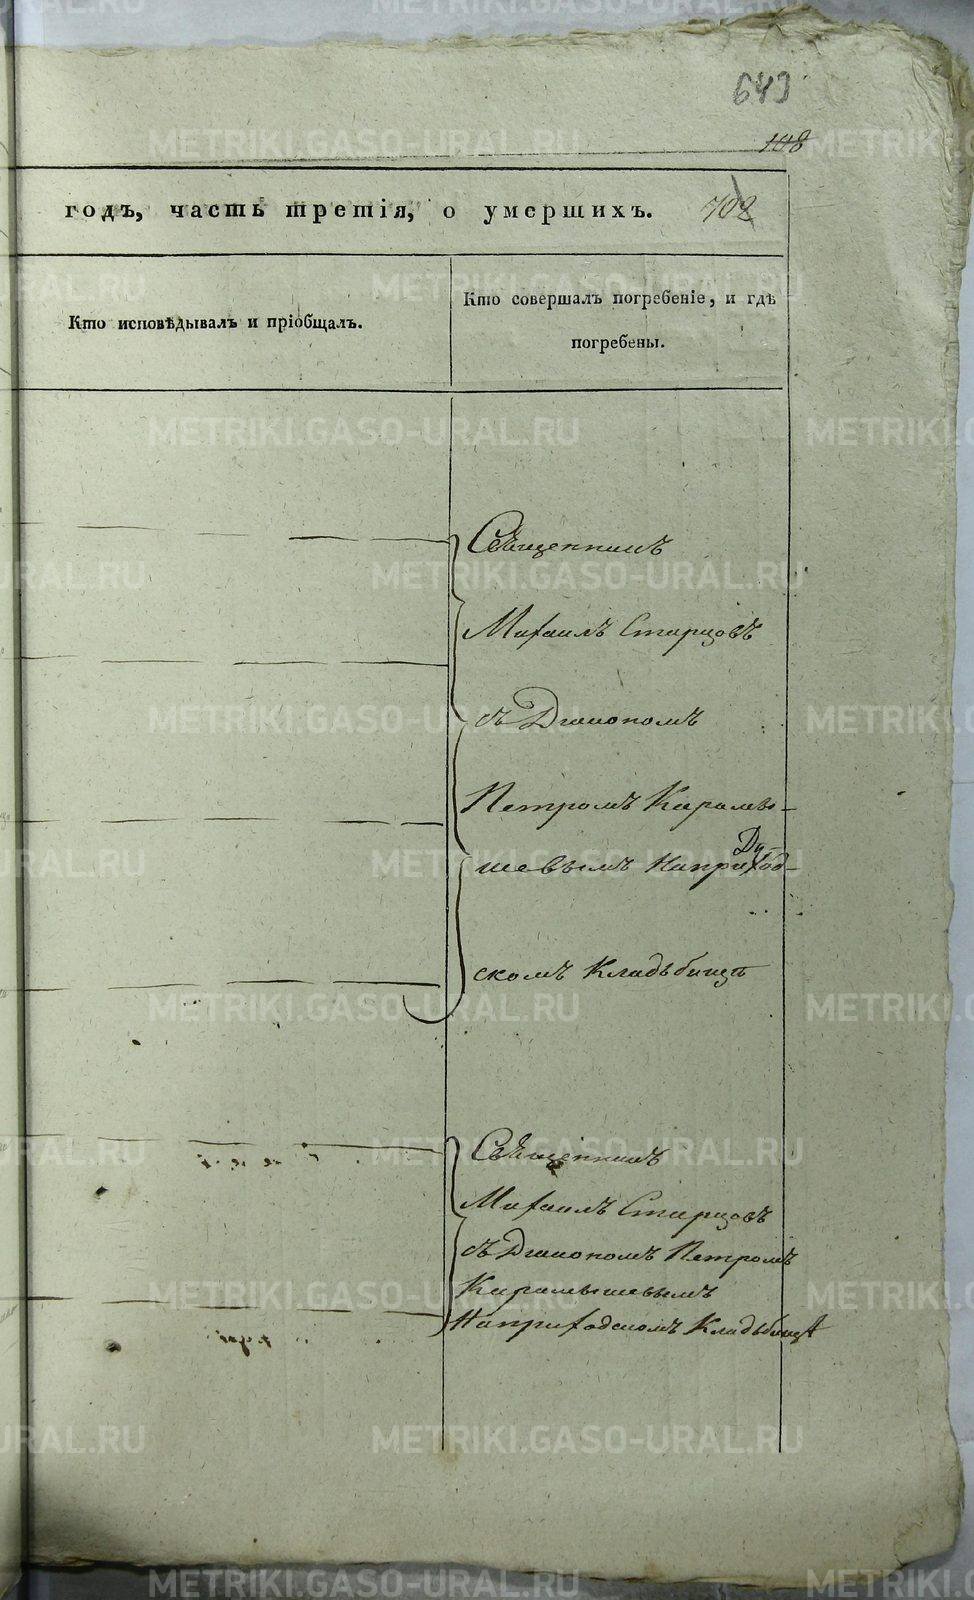 649
108
годъ, часть третія, о умершихъ. 702
Кто исповѣдывалъ и пріобщалъ.
Кто совершалъ погребеніе, и гдѣ
погребены.
Священникъ
Михаилъ Старцовъ
съ Дьякономъ
Петромъ Карамы-
шевымъ Наприход-
скомъ Кладьбищѣ
Священникъ
Михаилъ Старцовъ
съ Дьякономъ Петромъ
Карамышевымъ
Наприходскомъ Кладьбищѣ
METRIKI.GASO-URAL.RU